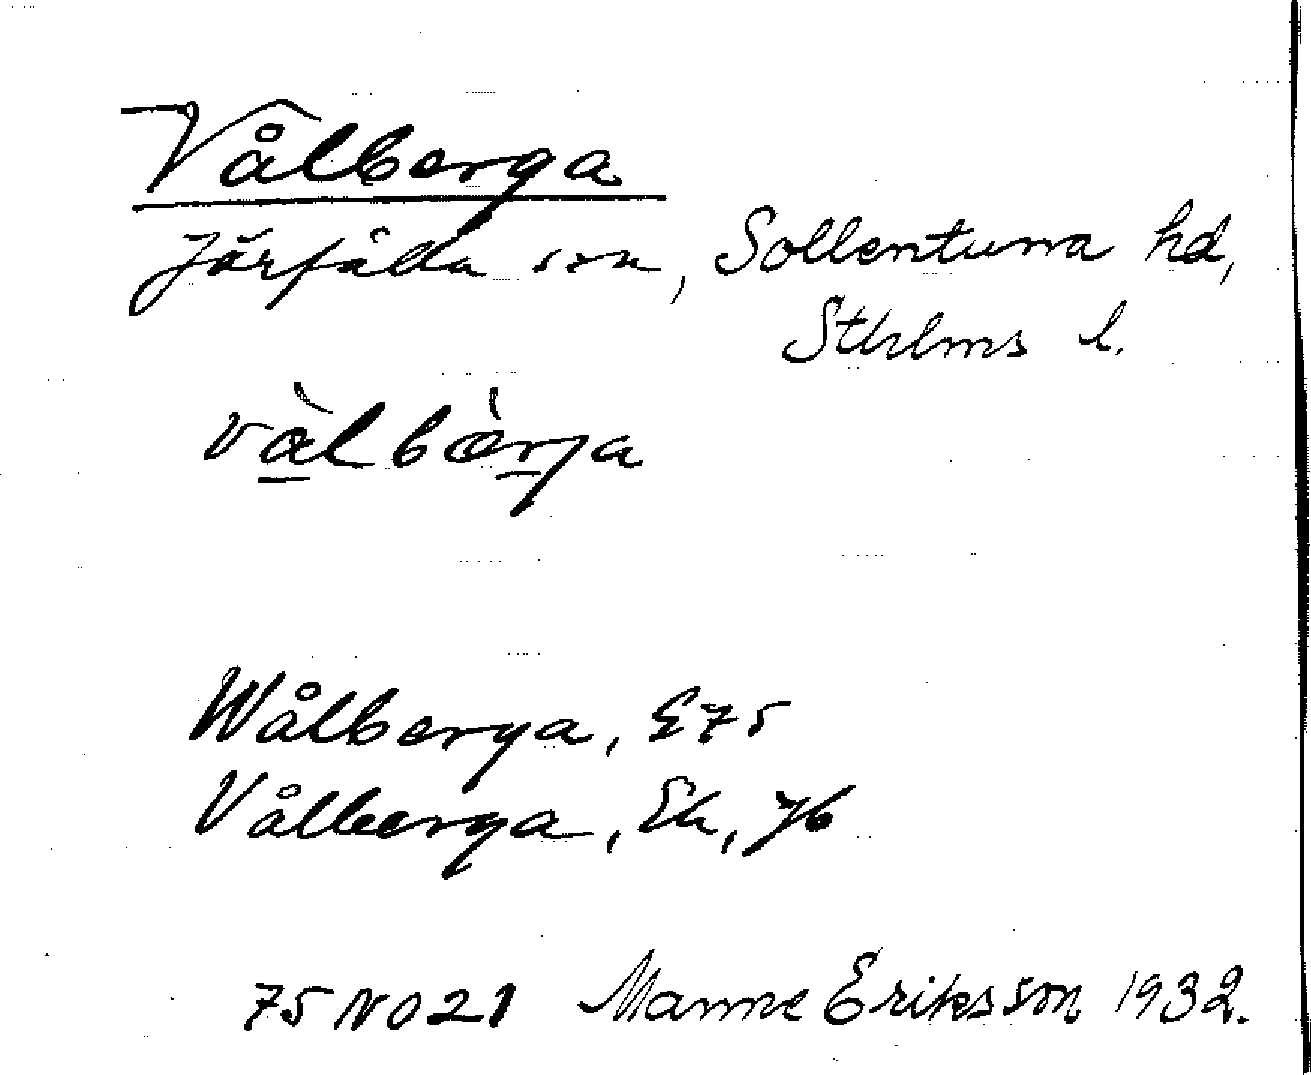 Vålberga
Järfälla sn, Sollentuna hd,
Sthlms l.
vàlbærja
Wålberga, E75
Vålberga, Ek, 76
75 NO 21 Manne Eriksson 1932.